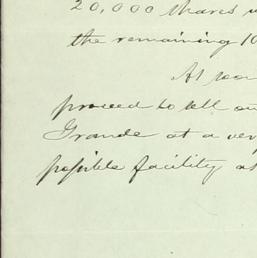 20,000 shares
the remaining 10
At
proceed to sell
Grande at a very
possible facility as